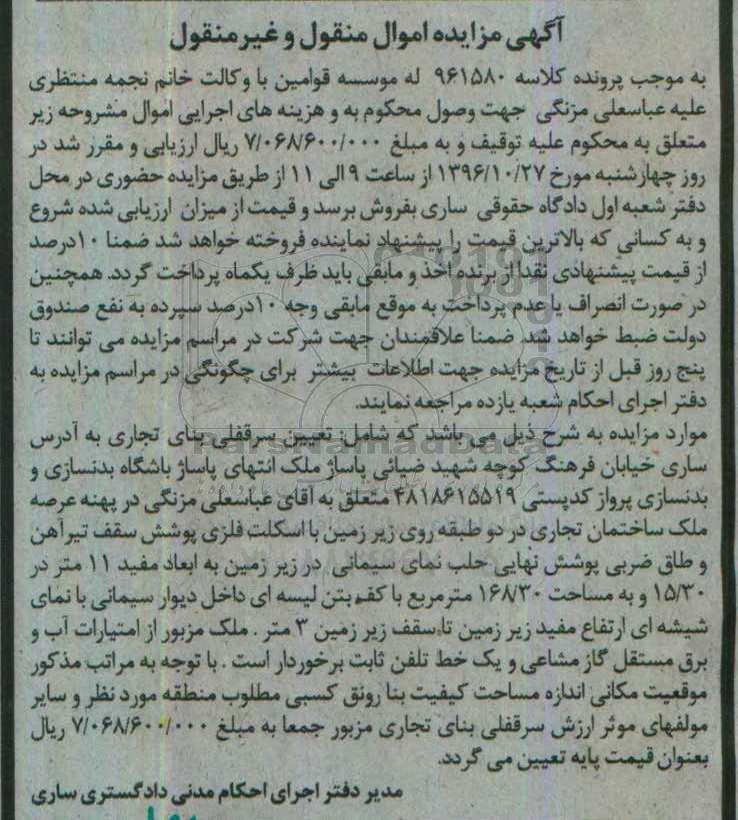 آگهی مزایده اموال منقول و غیرمنقول
به موجب پرونده کلاسه ۹۶۱۵۸۰ له موسسه قوامین با وکالت خانم نجمه منتظری
علیه عباسعلی مزنگی جهت وصول محکوم به و هزینه های اجرایی اموال مشروحه زیر
متعلق به محکوم علیه توقیف و به مبلغ ۷/۰۶۸/۶۰۰/۰۰۰ ریال ارزیابی و مقرر شد در
روز چهارشنبه مورخ ۱۳۹۶/۱۰/۲۷ از ساعت ۹ الی ۱۱ از طریق مزایده حضوری در محل
دفتر شعبه اول دادگاه حقوقی ساری بفروش برسد و قیمت از میزان ارزیابی شده شروع
و به کسانی که بالاترین قیمت را پیشنهاد نماینده فروخته خواهد شد ضمنا ۱۰درصد
از قیمت پیشنهادی نقدا از برنده اخذ و مابقی باید ظرف یکماه پرداخت گردد. همچنین
در صورت انصراف یا عدم پرداخت به موقع مابقی وجه ۱۰درصد سپرده به نفع صندوق
دولت ضبط خواهد شد. ضمنا علاقمندان جهت شرکت در مراسم مزایده می توانند تا
پنج روز قبل از تاریخ مزایده جهت اطلاعات بیشتر برای چگونگی در مراسم مزایده به
دفتر اجرای احکام شعبه یازده مراجعه نمایند.
موارد مزایده به شرح ذیل می باشد که شامل: تعیین سرقفلی بنای تجاری به آدرس
ساری خیابان فرهنگ کوچه شهید ضیائی پاساژ ملک انتهای پاساژ باشگاه بدنسازی و
بدنسازی پرواز کدپستی ۴۸۱۸۶۱۵۵۱۹ متعلق به آقای عباسعلی مزنگی در پهنه عرصه
ملک ساختمان تجاری در دو طبقه روی زیر زمین با اسکلت فلزی پوشش سقف تیرآهن
و طاق ضربی پوشش نهایی حلب نمای سیمانی در زیر زمین به ابعاد مفید ۱۱ متر در
۱۵/۳۰ و به مساحت ۱۶۸/۳۰ مترمربع با کف بتن لیسه ای داخل دیوار سیمانی با نمای
شیشه ای ارتفاع مفید زیر زمین تا سقف زیر زمین ۳ متر . ملک مزبور از امتیارات آب و
برق مستقل گاز مشاعی و یک خط تلفن ثابت برخوردار است . با توجه به مراتب مذکور
موقعیت مکانی اندازه مساحت کیفیت بنا رونق کسبی مطلوب منطقه مورد نظر و سایر
مولفهای موثر ارزش سرقفلی بنای تجاری مزبور جمعا به مبلغ ۷/۰۶۸/۶۰۰/۰۰۰ ریال
بعنوان قیمت پایه تعیین می گردد.
مدیر دفتر اجرای احکام مدنی دادگستری ساری